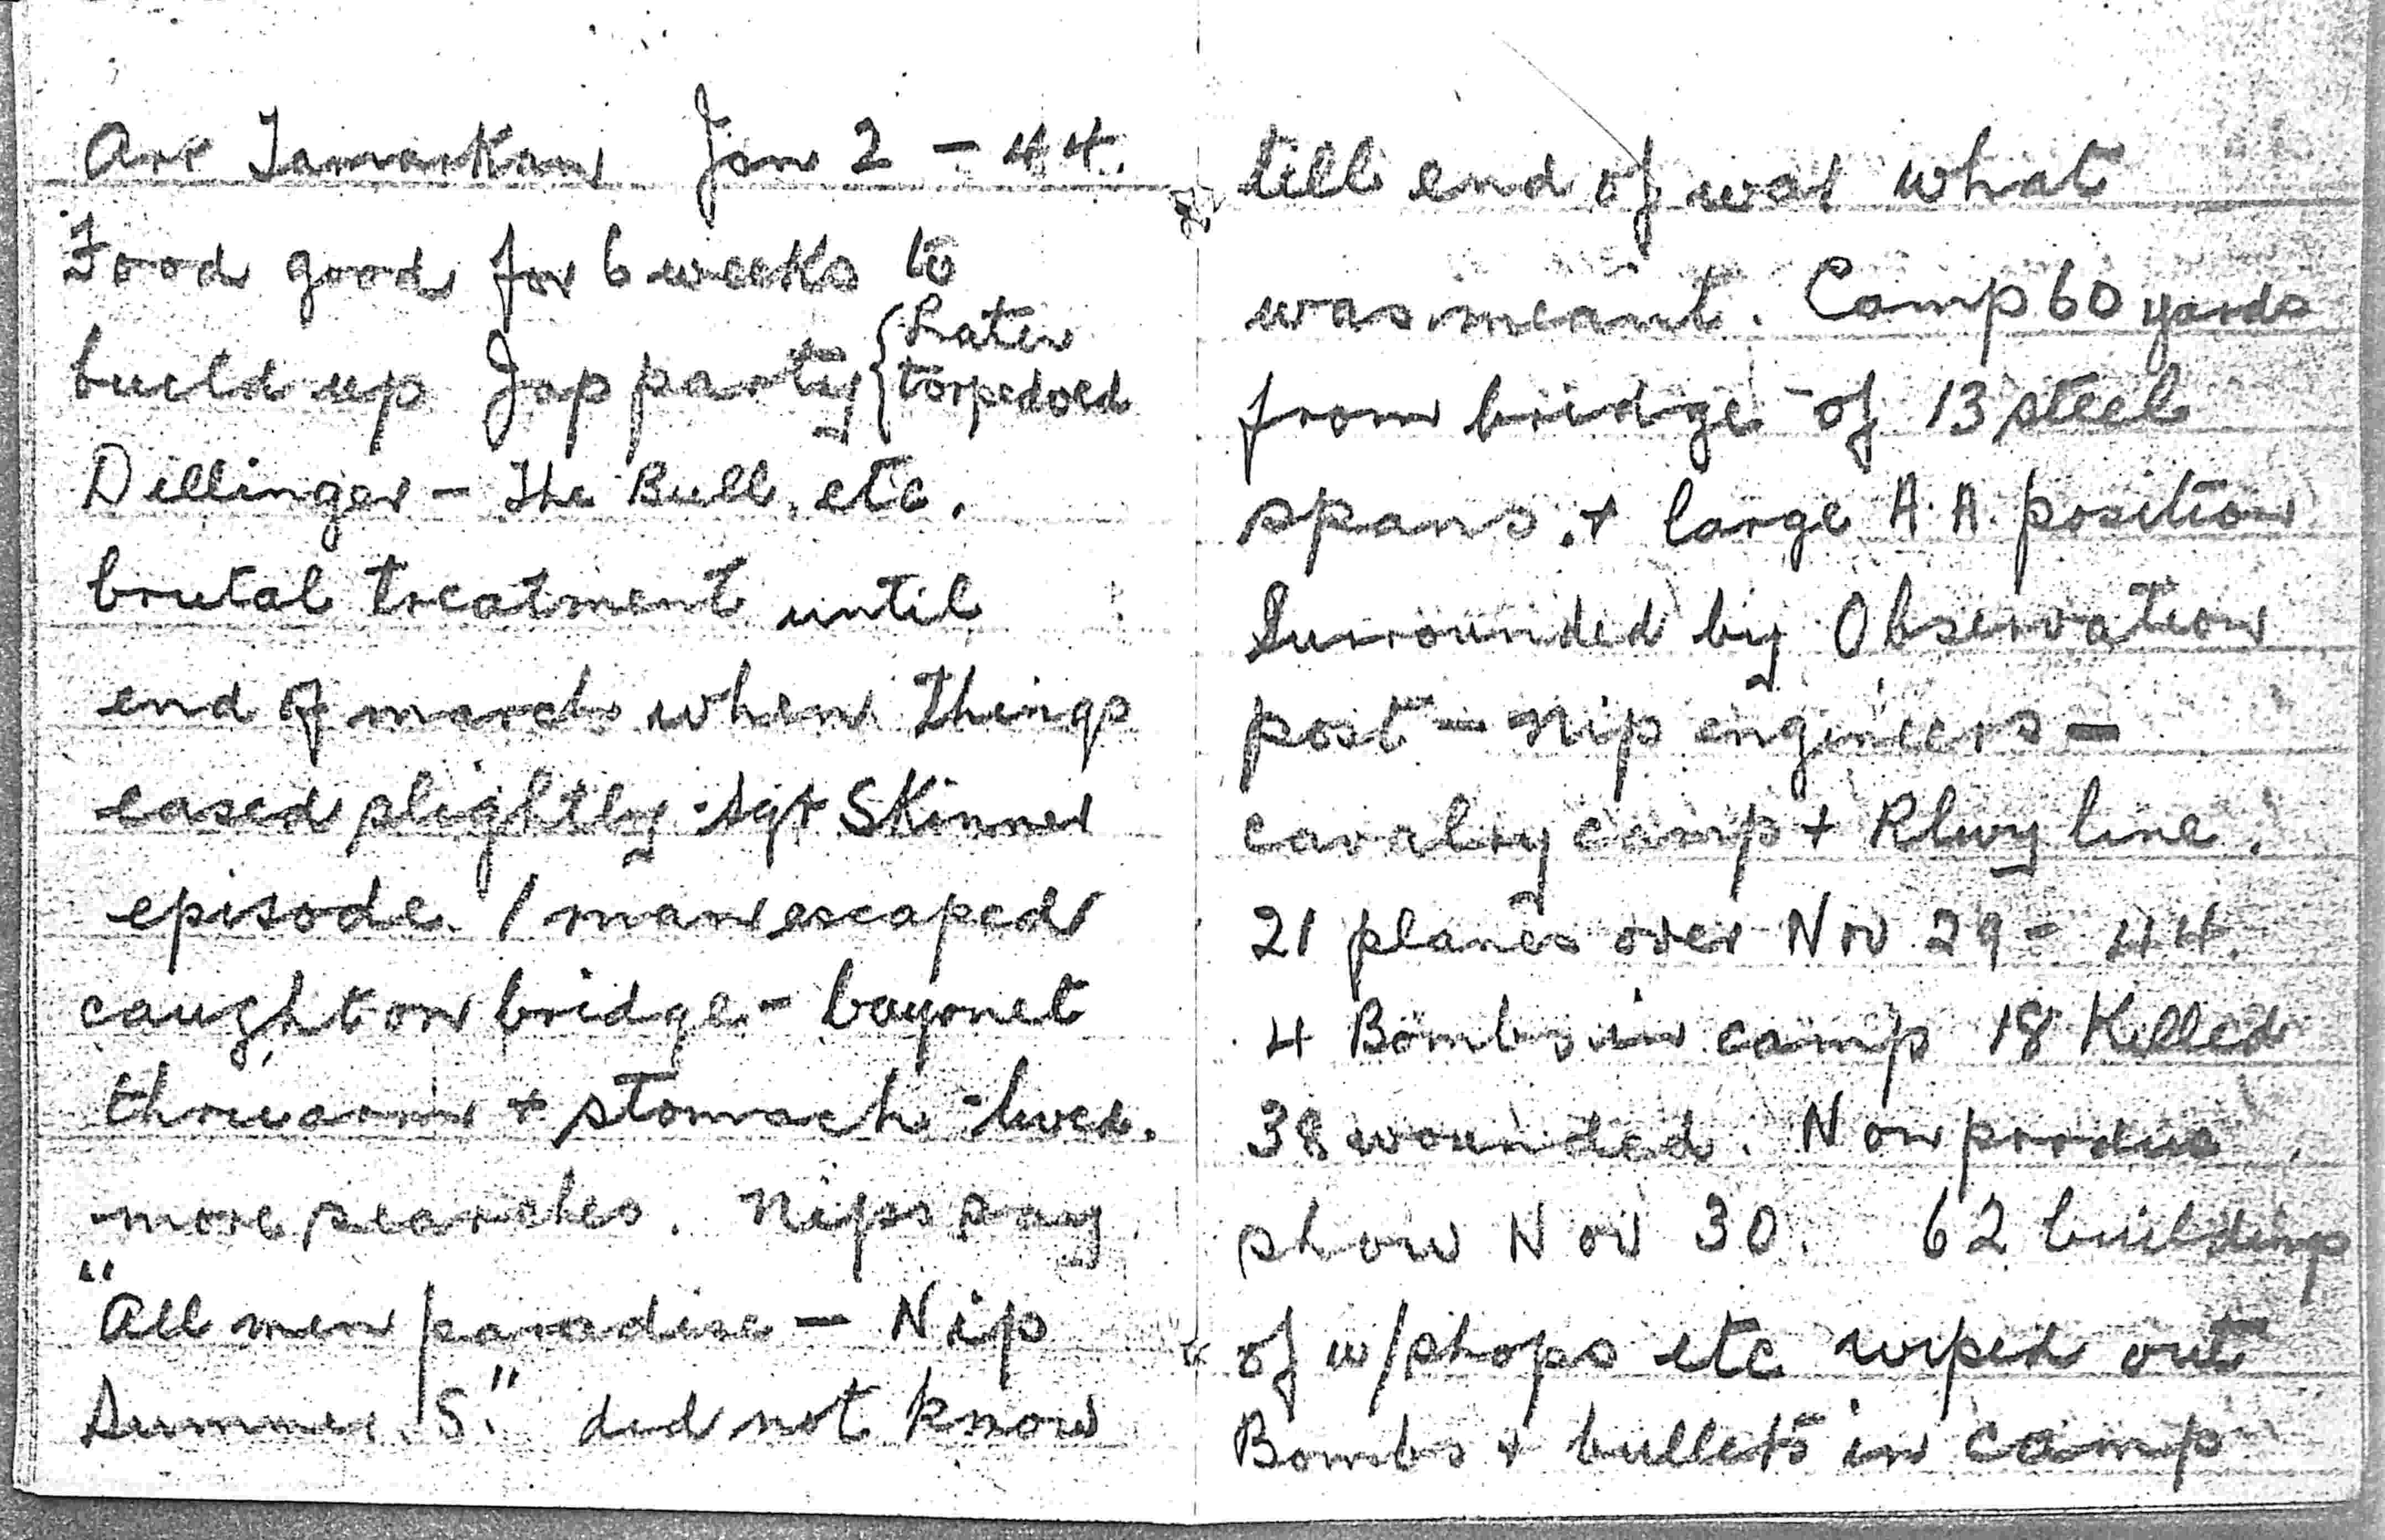 Arr Tamarkan Jan 2 - 44.
Food good for 6 weeks to
build up Jap party { Later
torpedoed
Dillinger - The Bull, etc.
brutal treatment until
end of march when things
eased slightly - Sgt Skinner
episode. 1 man escaped
caught on bridge - bayonet
thru arm + stomach - lived.
more searches. Nips say
"All men paradise - Nip
Summer S." did not know
till end of war what
was meant. Camp 60 yards
from bridge - of 13 steel
spans. + large A.A. position
Surrounded by Observation
post - Nip engineers -
cavalry camp + Rlwy line.
21 planes over Nov 29 - 44.
4 Bombs in camp 18 Killed
38 wounded. Non
show Nov 30. 62 buildings
of w/shops etc wiped out
Bombs + bullets in camp